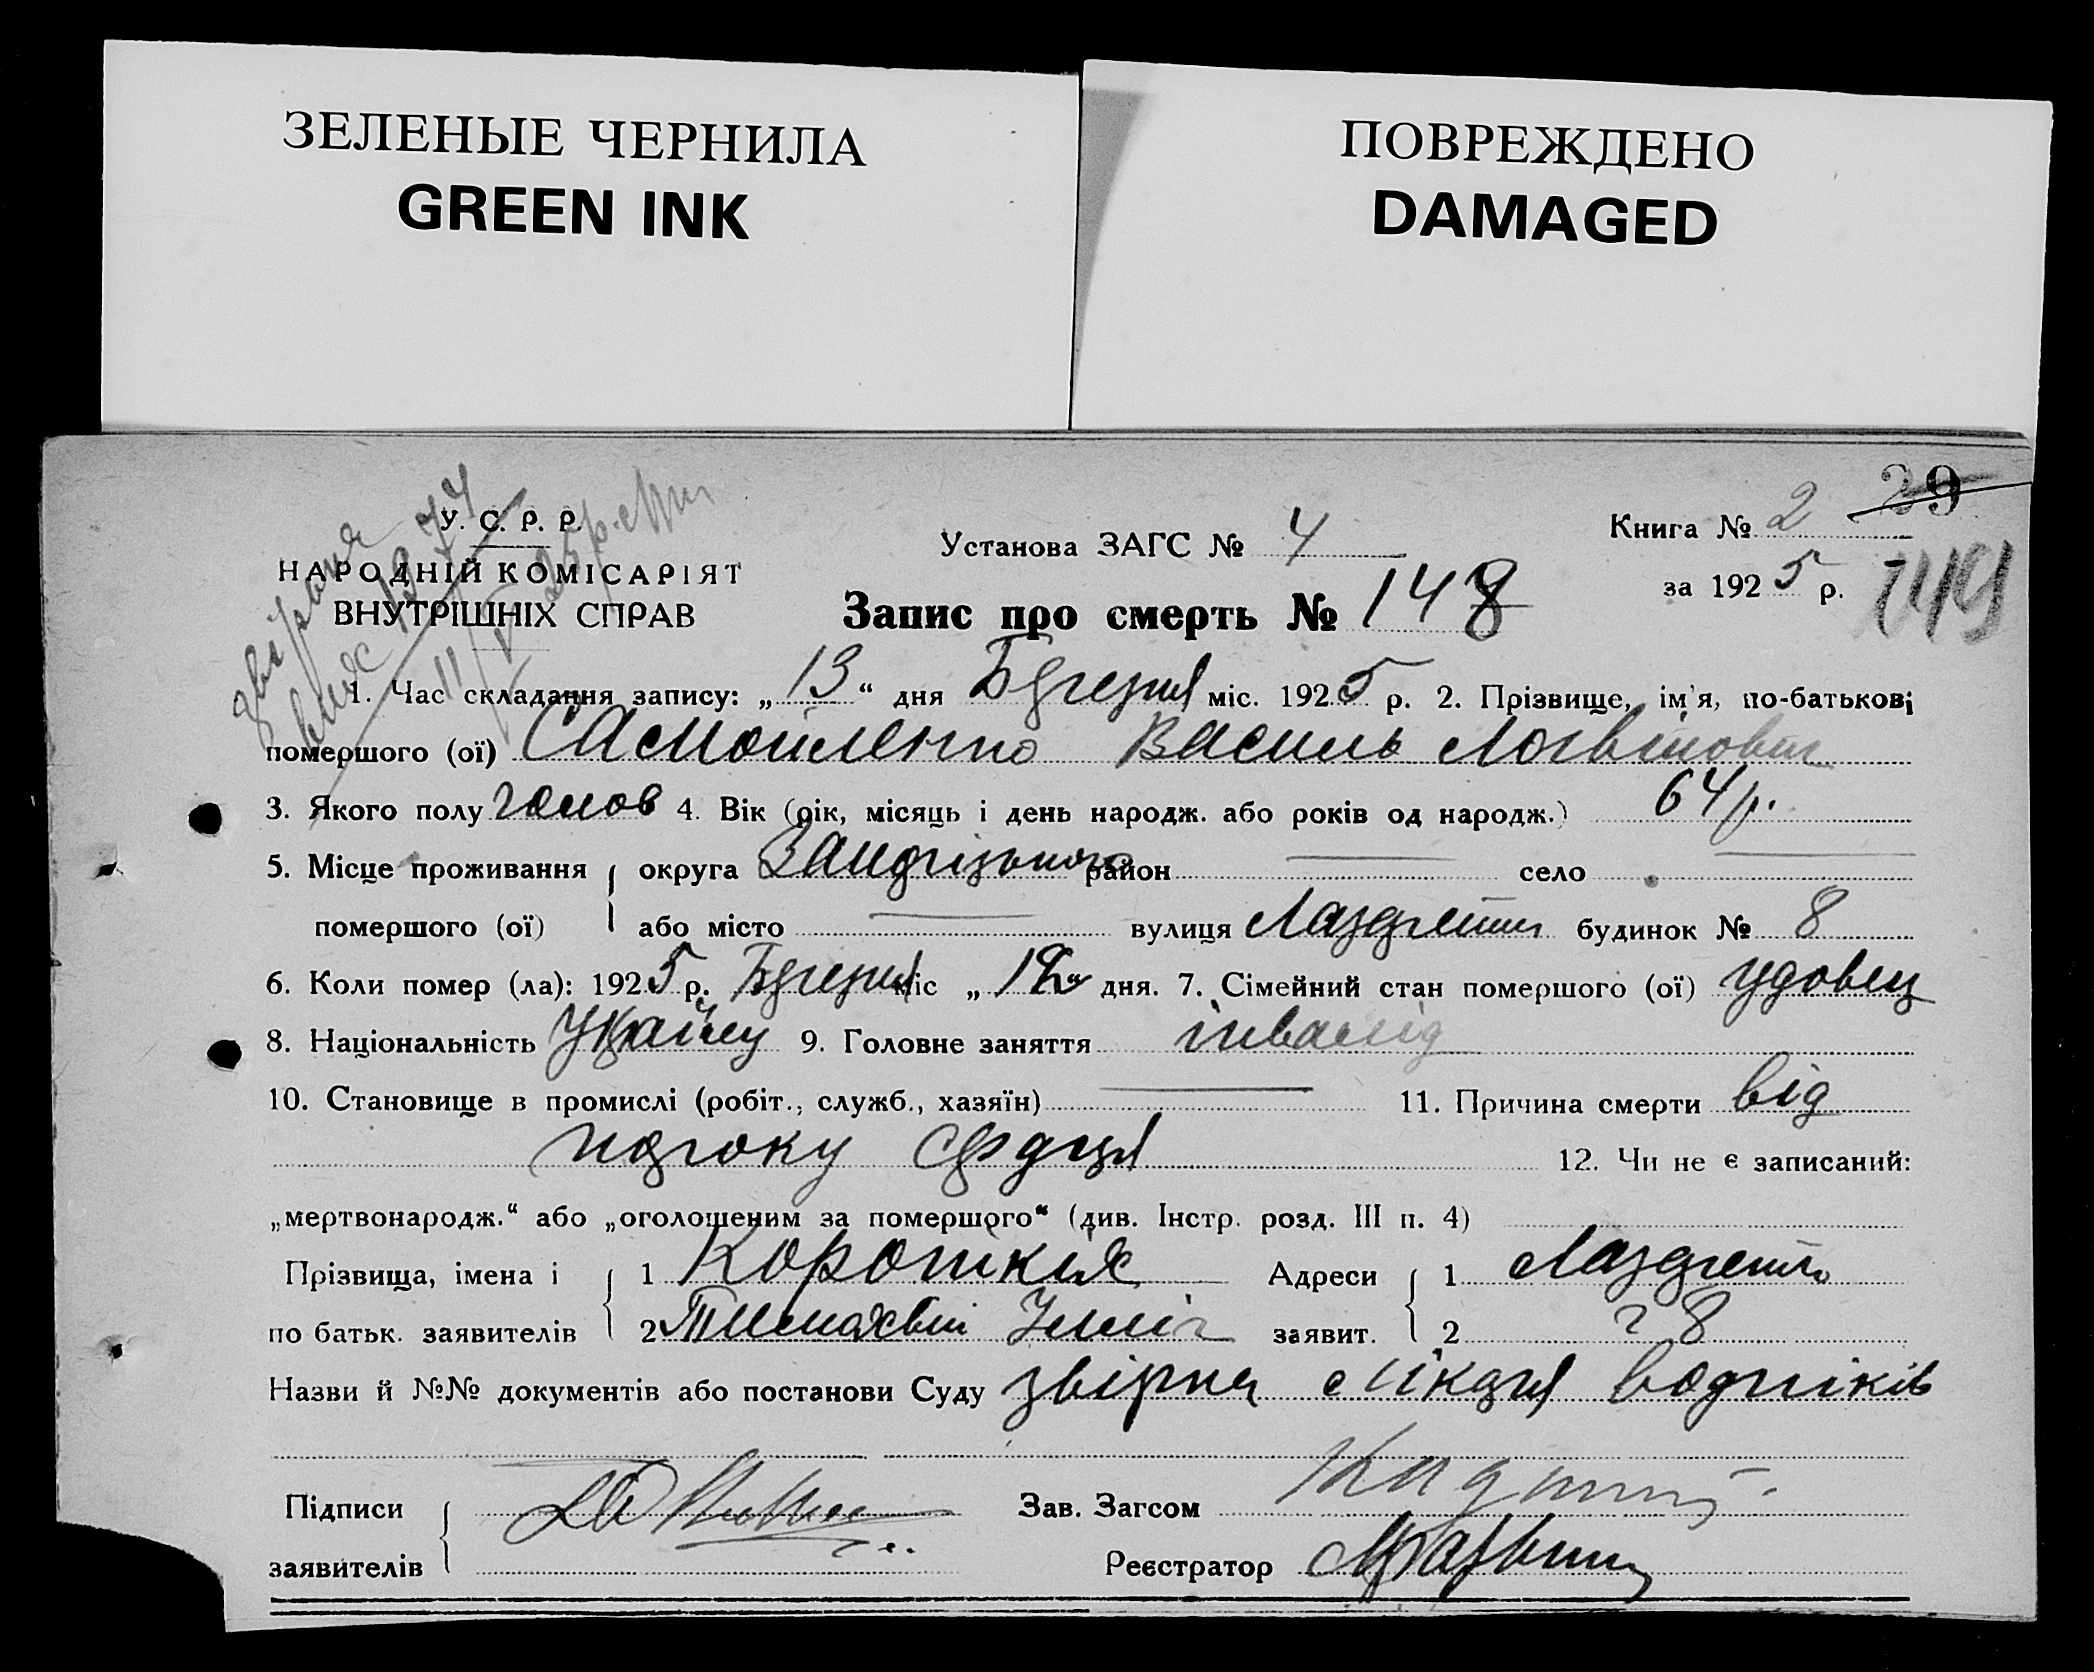 ЗЕЛЕНЫЕ ЧЕРНИЛА
GREEN INK
ПОВРЕЖДЕНО
DAMAGED
29
У. С. Р. Р.
НАРОДНІЙ КОМІСАРІЯТ
ВНУТРІШНІХ СПРАВ
Установа ЗАГС № 4
Книга № 2
за 1925 р.
149
Запис про смерть № 148
1. Час складання запису: „13“ дня Березня міс. 1925 р. 2. Прізвище, ім'я, по-батькові
помершого (ої) Самойленко Василь Логвінович
3. Якого полу чолов 4. Вік (рік, місяць і день народж. або років од народж.) 64 р.
5. Місце проживання округа район село
помершого (ої) або місто вулиця Лазаретн будинок № 8
6. Коли помер (ла): 1925 р. Березня міс „12“ дня. 7. Сімейний стан помершого (ої) удовец
8. Національність 9. Головне заняття інвалід
10. Становище в промислі (робіт., служб., хазяїн) 11. Причина смерти від
пороку сердця 12. Чи не є записаний:
„мертвонародж.“ або „оголошеним за помершого“ (див. Інстр. розд. III п. 4)
Прізвища, імена і 1 Коротких Адреси 1 Лазаретн
по батьк. заявителів 2 заявит. 2 8
Назви й №№ документів або постанови Суду лікаря водників
Підписи Зав. Загсом
заявителів Реєстратор